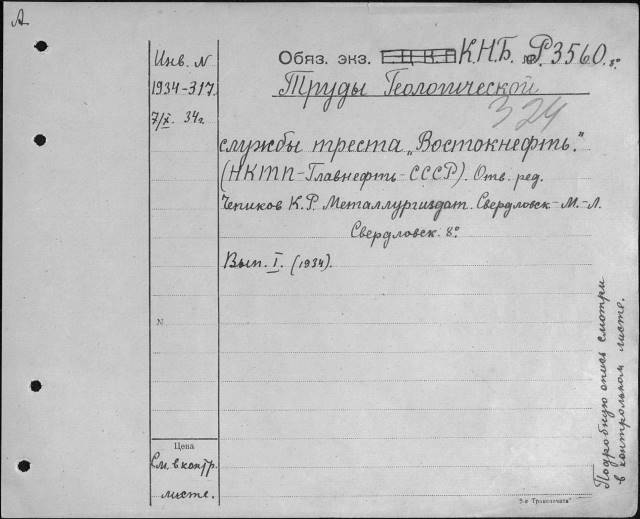 А
Инв. N
1934-317.
7/X. 34г.
Обяз. экз. Е.Ц.К.Н К.Н.Б. № Р3560. 8°
Труды Геологической
324
службы треста „Востокнефть."
(НКТП-Главнефть-СССР). Отв. ред.
Чепиков К.Р. Металлургиздат. Свердловск-М.-Л.
Свердловск. 8°.
Вып. I. (1934).
N
Цена
См. в контр.
листе.
Подробную опись смотри
в контрольном листе.